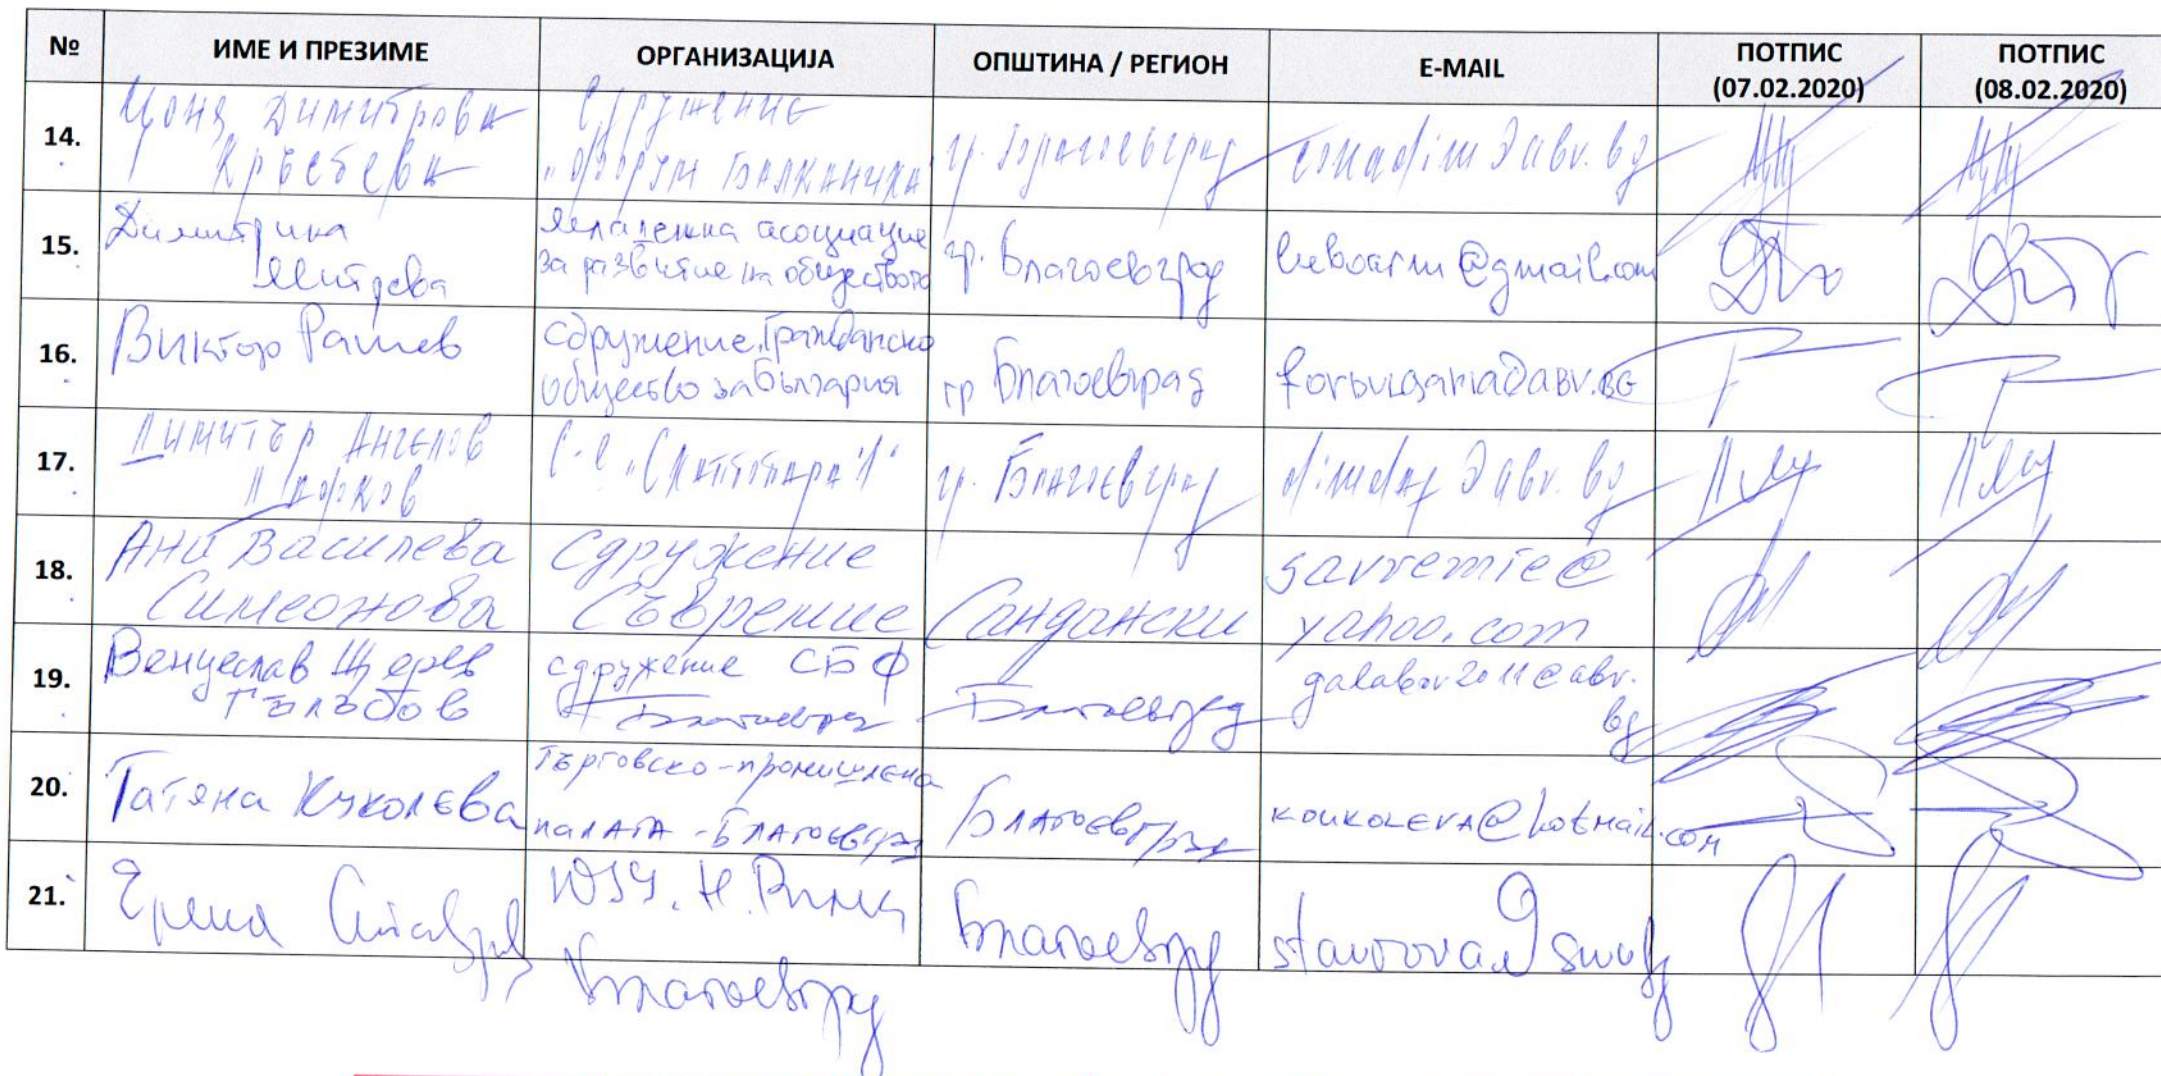 № ИМЕ И ПРЕЗИМЕ ОРГАНИЗАЦИЈА ОПШТИНА / РЕГИОН E-MAIL ПОТПИС (07.02.2020) ПОТПИС (08.02.2020)
14.
Цона Димитрова
Кръстева
Сдружение
"Форум Балканика"
гр. Благоевград
conadim@abv.bg
15.
Димитрина
Митрева
Младежка асоциация
за развитие на обществото
гр. Благоевград
@gmail.com
16.
Виктор Рашев
Сдружение "Гражданско
общество за България
гр Благоевград
forbulgaria@abv.BG
17.
Димитър Ангелов
гр. Благоевград
@abv.bg
18.
Ани Василева
Симеонова
Сдружение
Съвремие
Сандански
savremie@
yahoo.com
19.
Венцеслав Щерев
Гълъбов
сдружение СБФ
Благоевград
Благоевград
galabov2011@abv.
bg
20.
Татяна Куколева
Търговско-промишлена
палата - Благоевград
Благоевград
koukoleva@hotmail.com
21.
ЮЗУ "Н. Рилски
Благоевград
Благоевград